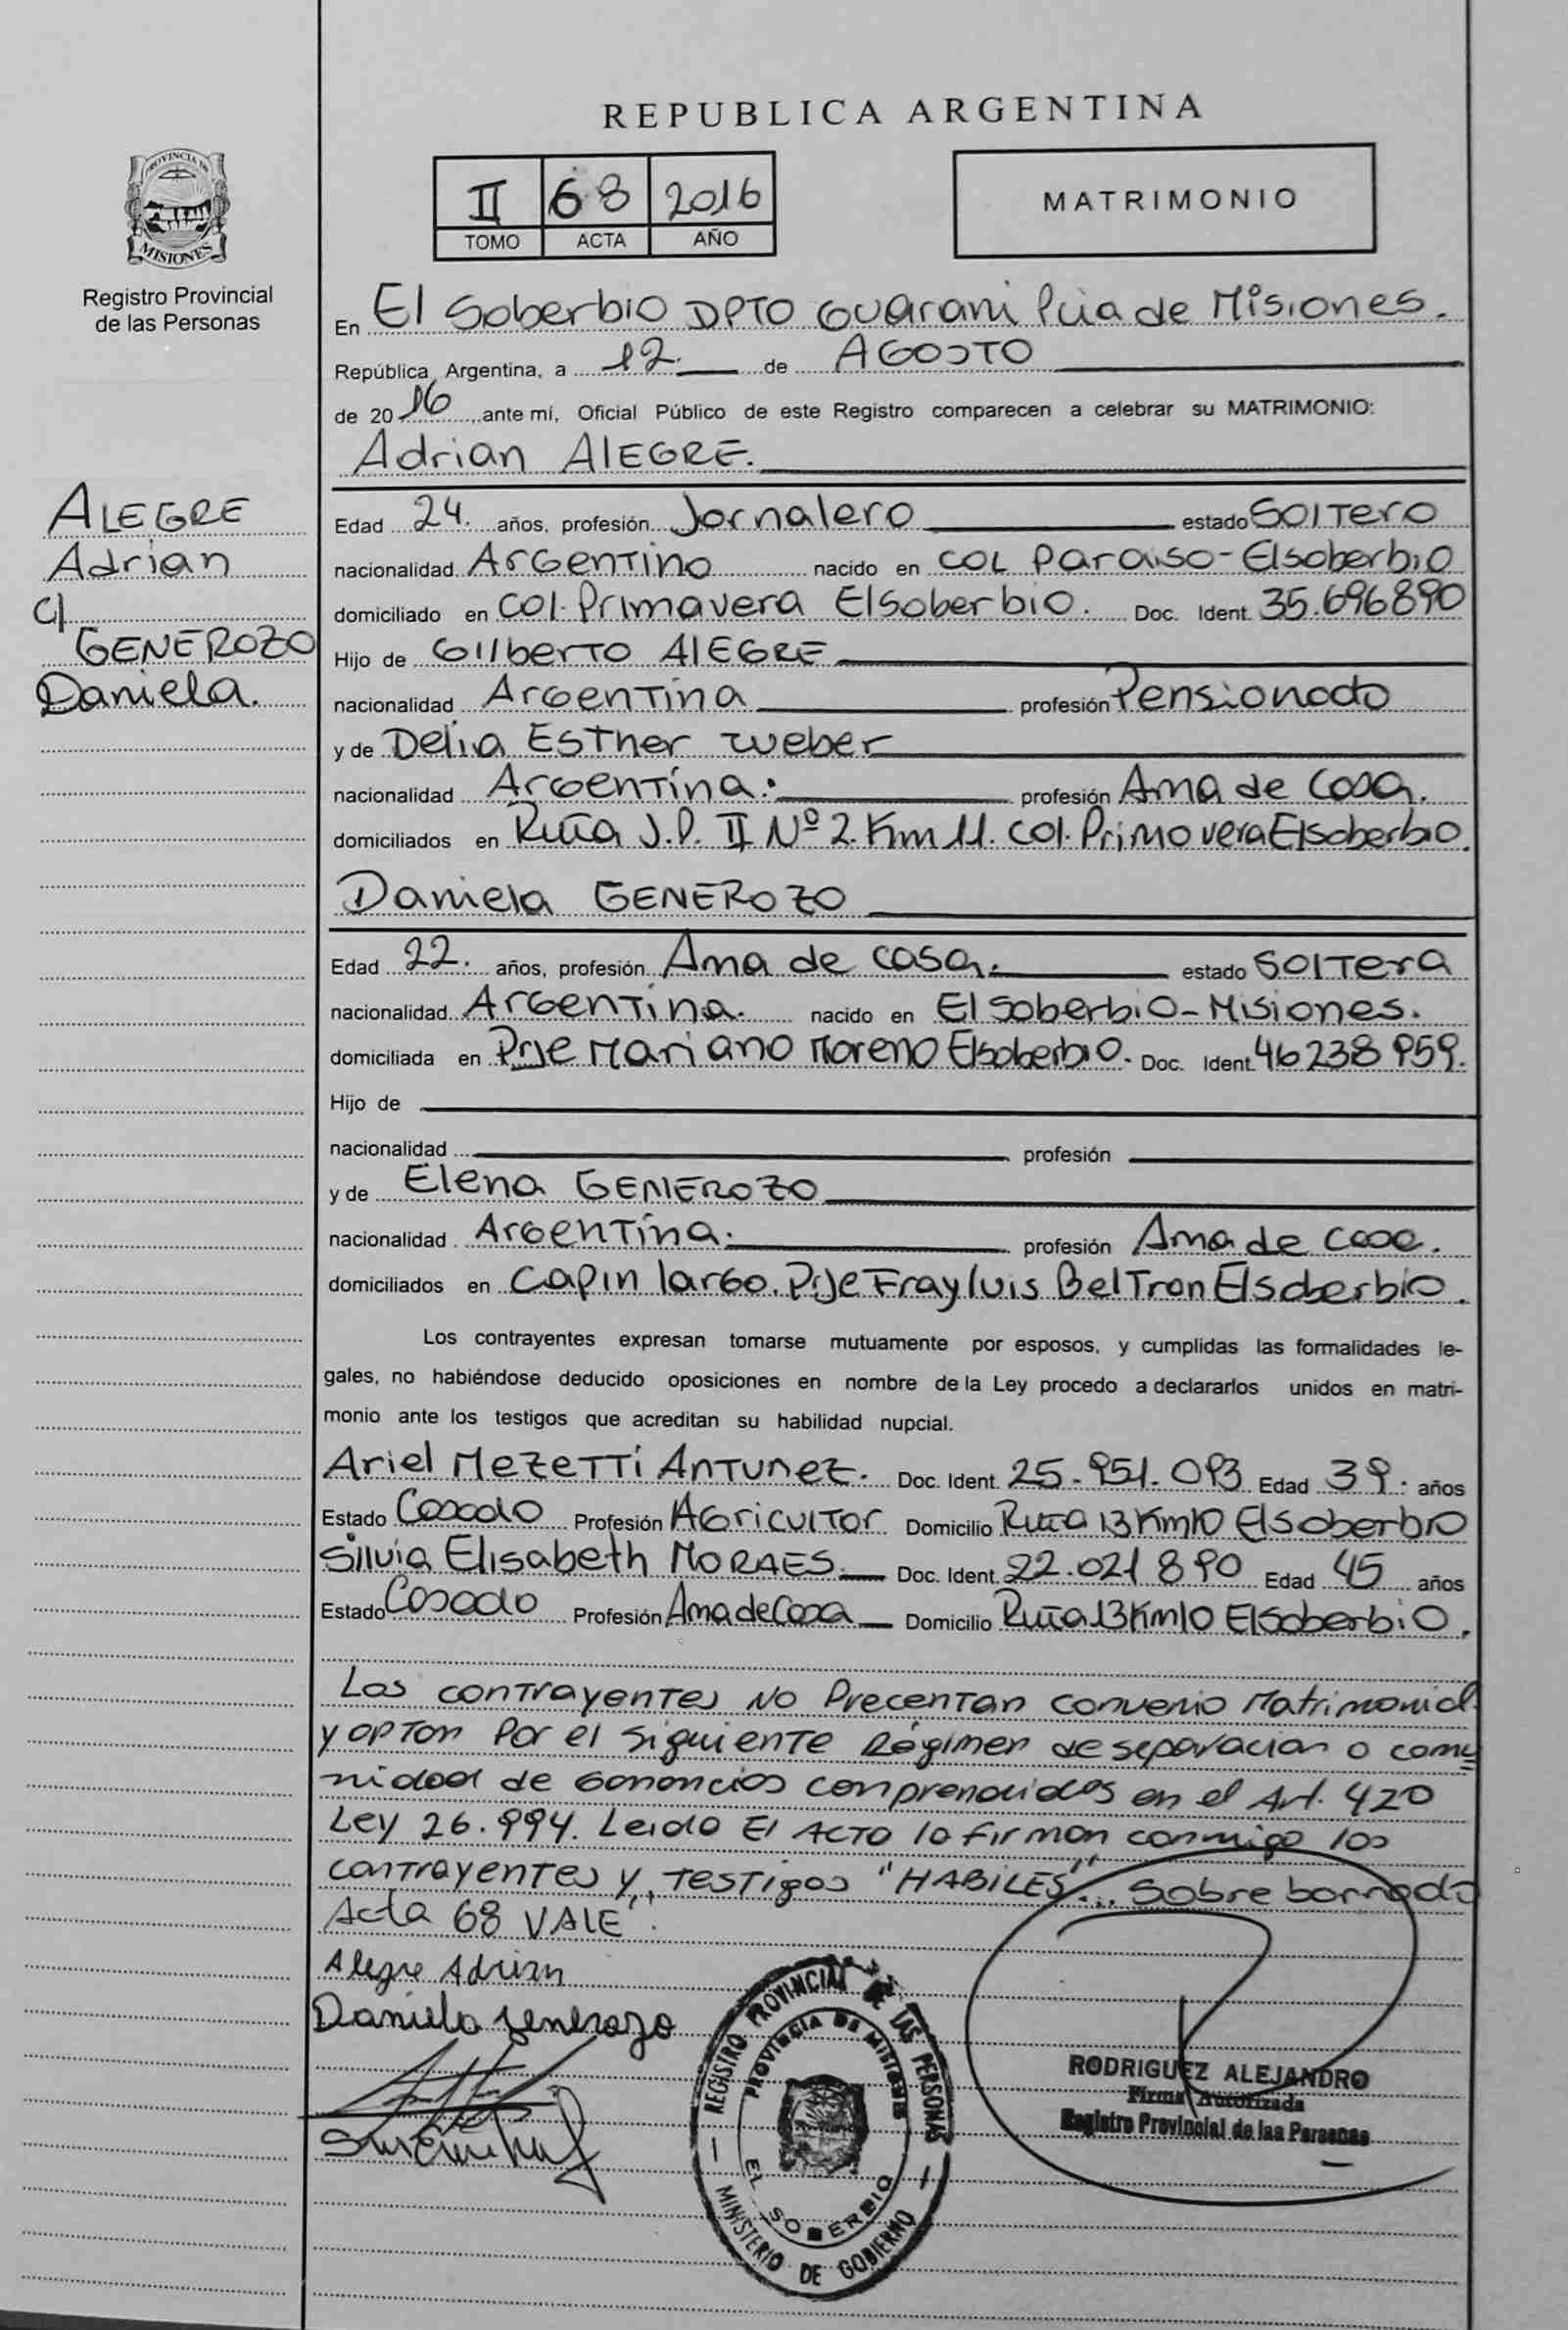 REPUBLICA ARGENTINA
PROVINCIA DE
MISIONES
Registro Provincial
de las Personas
II 68 2016
TOMO ACTA AÑO
MATRIMONIO
En El Soberbio DPTO GUarani Pcia de Misiones.
República Argentina, a 12. de AGOSTO
de 2016, ante mí, Oficial Público de este Registro comparecen a celebrar su MATRIMONIO:
Adrian AlEGRE.
ALEGRE
Adrian
c/
GENEROZO
Daniela.
Edad 24. años, profesión Jornalero estado SOlTero
nacionalidad ArGenTino nacido en COL Paraiso - Elsoberbio
domiciliado en Col. Primavera Elsoberbio. Doc. Ident. 35.696890
Hijo de GIlberTO AlEGRE
nacionalidad ArGenTina profesión Pensionado
y de Delia EsTher Weber
nacionalidad ArGenTina. profesión Ama de Casa.
domiciliados en Ruta J.P. II Nº 2. Km 11. Col. PrimaveraElsoberbio.
Daniela GENEROZO
Edad 22. años, profesión Ama de casa. estado SolTera
nacionalidad ArGenTina. nacido en El soberbio - Misiones.
domiciliada en Prje Mariano Moreno Elsoberbio. Doc. Ident. 46238959.
Hijo de
nacionalidad profesión
y de Elena GENEROZO
nacionalidad ArGenTina. profesión Ama de casa.
domiciliados en Capin larGo. Prje Fray luis BelTran Elsoberbio.
Los contrayentes expresan tomarse mutuamente por esposos, y cumplidas las formalidades le-
gales, no habiéndose deducido oposiciones en nombre de la Ley procedo a declararlos unidos en matri-
monio ante los testigos que acreditan su habilidad nupcial.
Ariel MezeTTi AnTunez. Doc. Ident. 25.951.093 Edad 39. años
Estado Casado Profesión AGriculTor Domicilio Ruta 13 Km10 Elsoberbio
Silvia Elisabeth MORAES. Doc. Ident. 22.021890 Edad 45 años
Estado Casado Profesión Ama de Casa Domicilio Ruta 13 Km10 Elsoberbio.
Los conTrayenTes NO PrecenTan convenio Matrimonial
y opTan Por el siguienTe Régimen de separacion o comu
nidad de Ganancias comprendidas en el Art. 420
Ley 26.994. Leida El ACTO lo firman conmigo los
conTrayenTes y TesTigos "HABILES"... Sobre borrado
Acta 68 VALE".
Alegre Adrian
Daniela Generozo
REGISTRO PROVINCIAL DE LAS PERSONAS
PROVINCIA DE MISIONES
EL SOBERBIO
MINISTERIO DE GOBIERNO
RODRIGUEZ ALEJANDRO
Firma Autorizada
Registro Provincial de las Personas